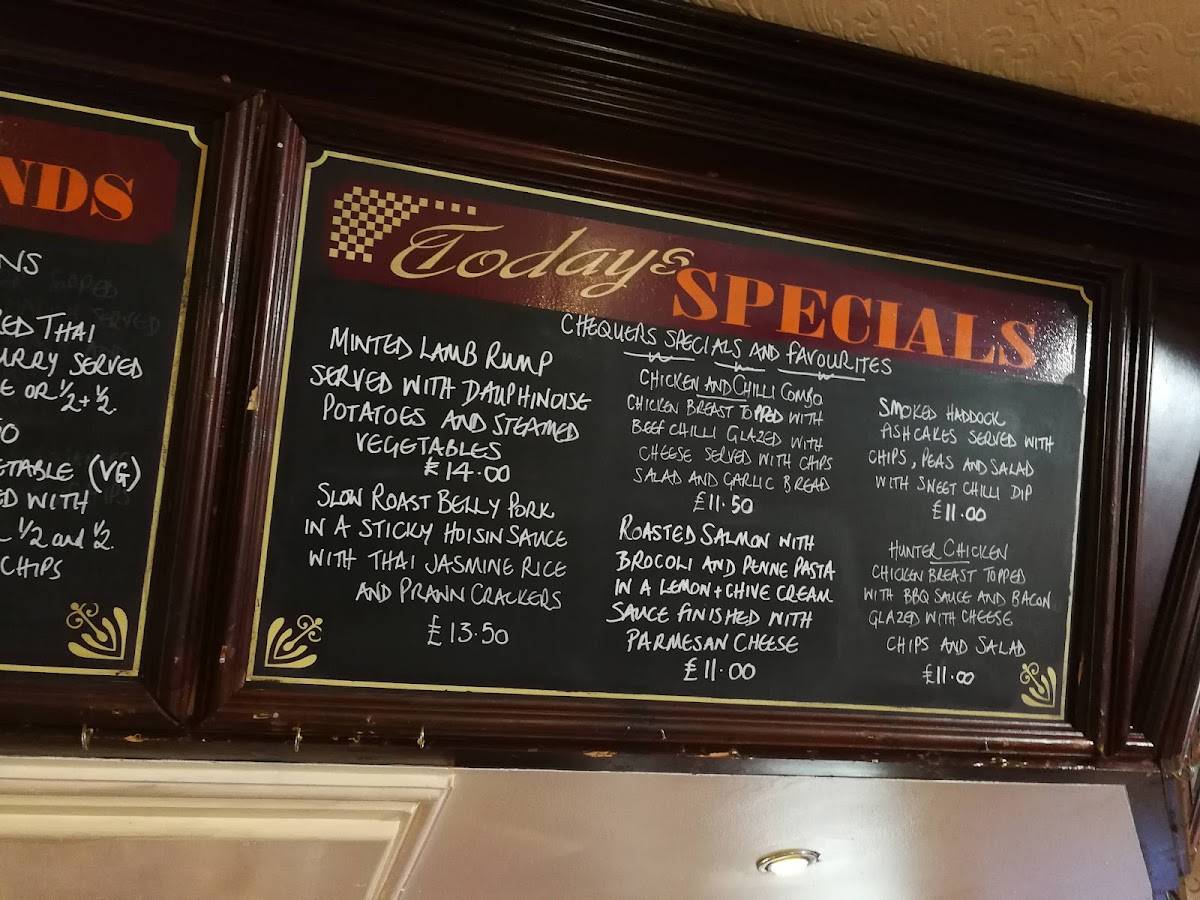 NDS
NS
RED THAI
URRY SERVED
E OR ½ + ½
50
ETABLE (VG)
ED WITH
½ and ½.
CHIPS
Todays SPECIALS
CHEQUERS SPECIALS AND FAVOURITES
MINTED LAMB RUMP
SERVED WITH DAUPHINOISE
POTATOES AND STEAMED
VEGETABLES
£14.00
SLOW ROAST BELLY PORK
IN A STICKY HOISIN SAUCE
WITH THAI JASMINE RICE
AND PRAWN CRACKERS
£13.50
CHICKEN AND CHILLI COMBO
CHICKEN BREAST TOPPED WITH
BEEF CHILLI GLAZED WITH
CHEESE SERVED WITH CHIPS
SALAD AND GARLIC BREAD
£11.50
ROASTED SALMON WITH
BROCOLI AND PENNE PASTA
IN A LEMON + CHIVE CREAM
SAUCE FINISHED WITH
PARMESAN CHEESE
£11.00
SMOKED HADDOCK
FISHCAKES SERVED WITH
CHIPS, PEAS AND SALAD
WITH SWEET CHILLI DIP
£11.00
HUNTER CHICKEN
CHICKEN BREAST TOPPED
WITH BBQ SAUCE AND BACON
GLAZED WITH CHEESE
CHIPS AND SALAD
£11.00